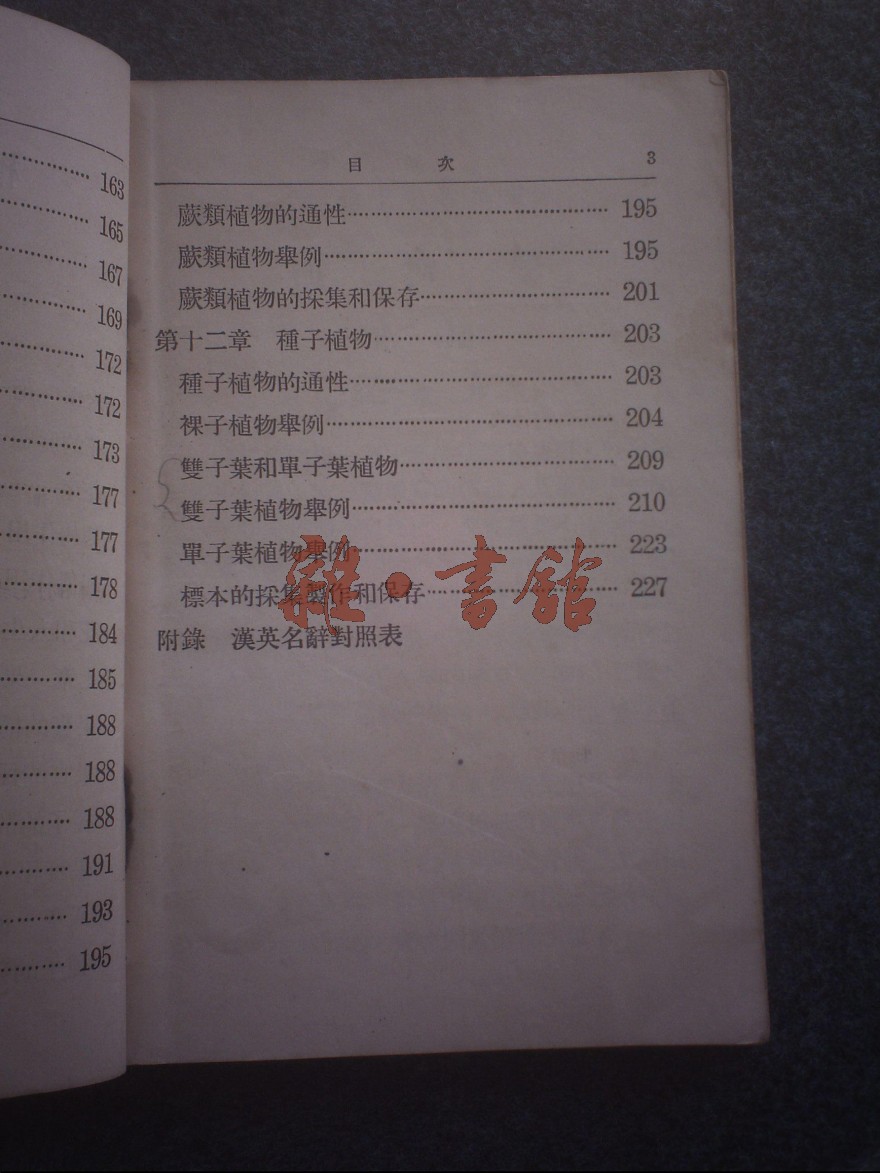 163
165
167
169
172
172
173
177
177
178
184
185
188
188
188
191
193
195
目次 3
蕨類植物的通性 195
蕨類植物舉例 195
蕨類植物的採集和保存 201
第十二章 種子植物 203
種子植物的通性 203
裸子植物舉例 204
雙子葉和單子葉植物 209
雙子葉植物舉例 210
單子葉植物舉例 223
標本的採集製作和保存 227
附錄 漢英名辭對照表
雜·書館